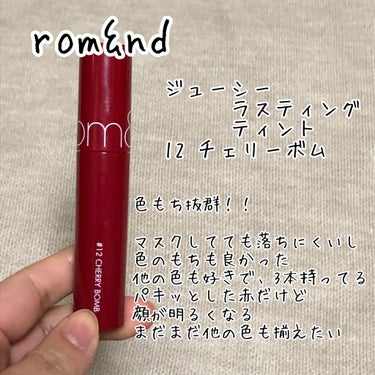 rom&nd
ジューシー
ラスティング
ティント
12 チェリーボム
om&
#12 CHERRY BOMB
色もち抜群!!
マスクしてても落ちにくいし
色のもちも良かった
他の色も好きで、3本持ってる
パキッとした赤だけど
顔が明るくなる
まだまだ他の色も揃えたい